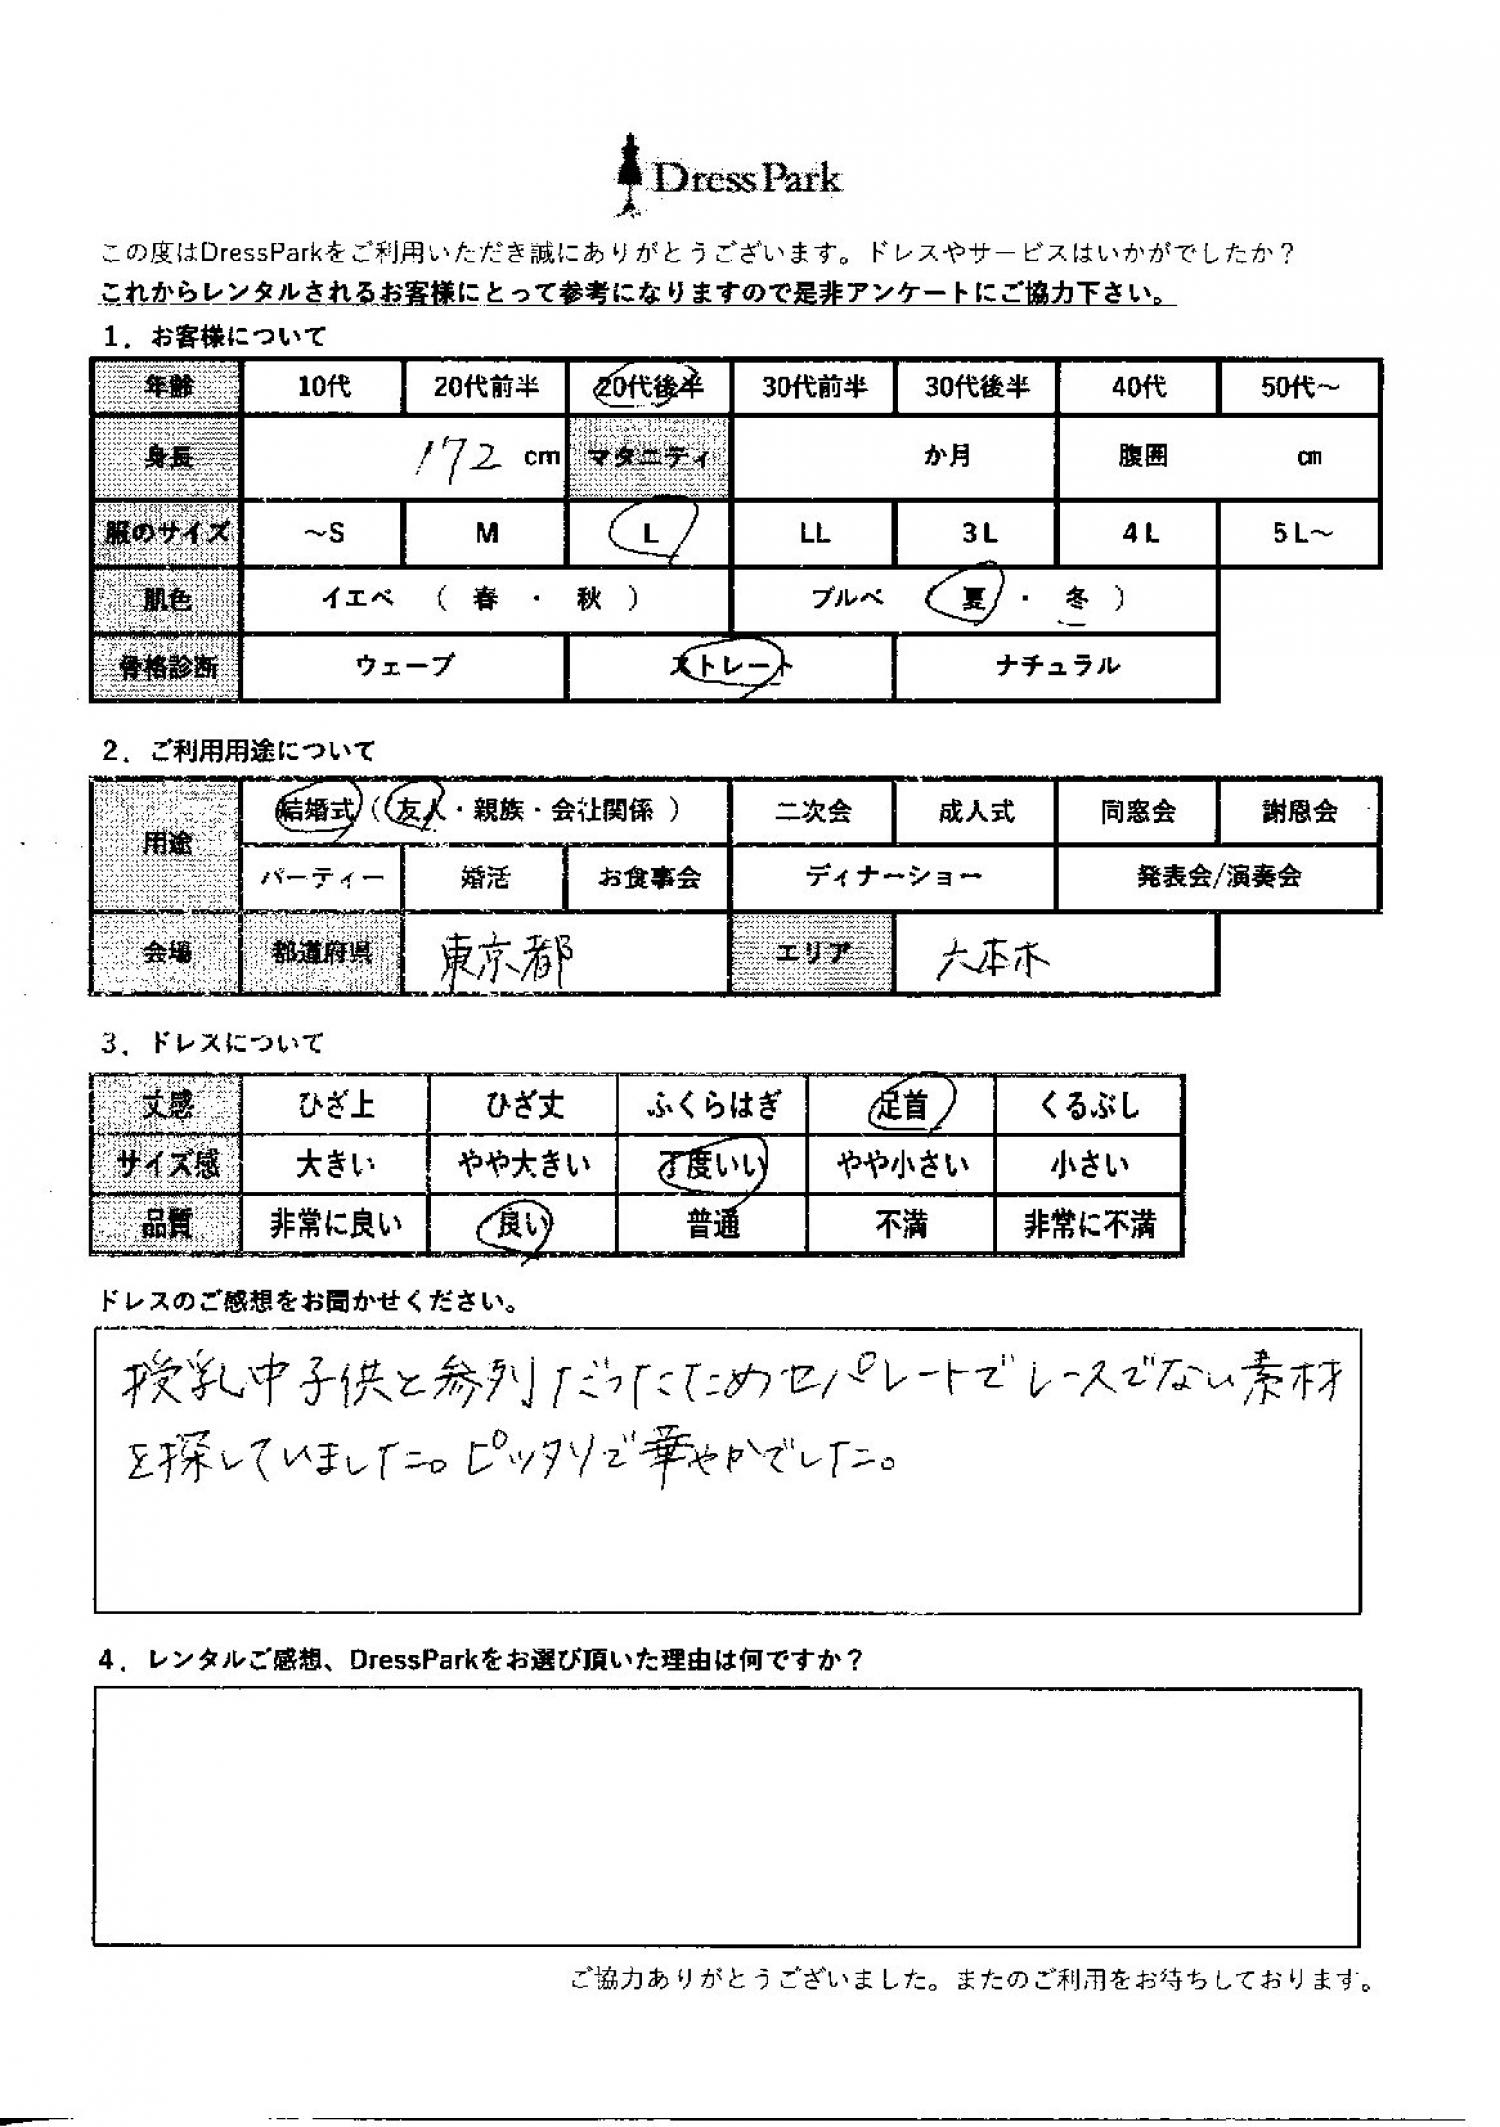 DressPark
この度はDressParkをご利用いただき誠にありがとうございます。ドレスやサービスはいかがでしたか？
これからレンタルされるお客様にとって参考になりますので是非アンケートにご協力下さい。
1．お客様について
年齢 10代 20代前半 20代後半 30代前半 30代後半 40代 50代～
身長 172 cm マタニティ か月 腹囲 cm
服のサイズ ～S M L LL 3L 4L 5L～
肌色 イエベ （ 春 ・ 秋 ） ブルベ （ 夏 ・ 冬 ）
骨格診断 ウェーブ ストレート ナチュラル
2．ご利用用途について
用途 結婚式（ 友人・親族・会社関係 ） 二次会 成人式 同窓会 謝恩会
パーティー 婚活 お食事会 ディナーショー 発表会/演奏会
会場 都道府県 東京都 エリア 六本木
3．ドレスについて
丈感 ひざ上 ひざ丈 ふくらはぎ 足首 くるぶし
サイズ感 大きい やや大きい 丁度いい やや小さい 小さい
品質 非常に良い 良い 普通 不満 非常に不満
ドレスのご感想をお聞かせください。
授乳中子供と参列だったためセパレートでレースでない素材
を探していました。ピッタリで華やかでした。
4．レンタルご感想、DressParkをお選び頂いた理由は何ですか？
ご協力ありがとうございました。またのご利用をお待ちしております。